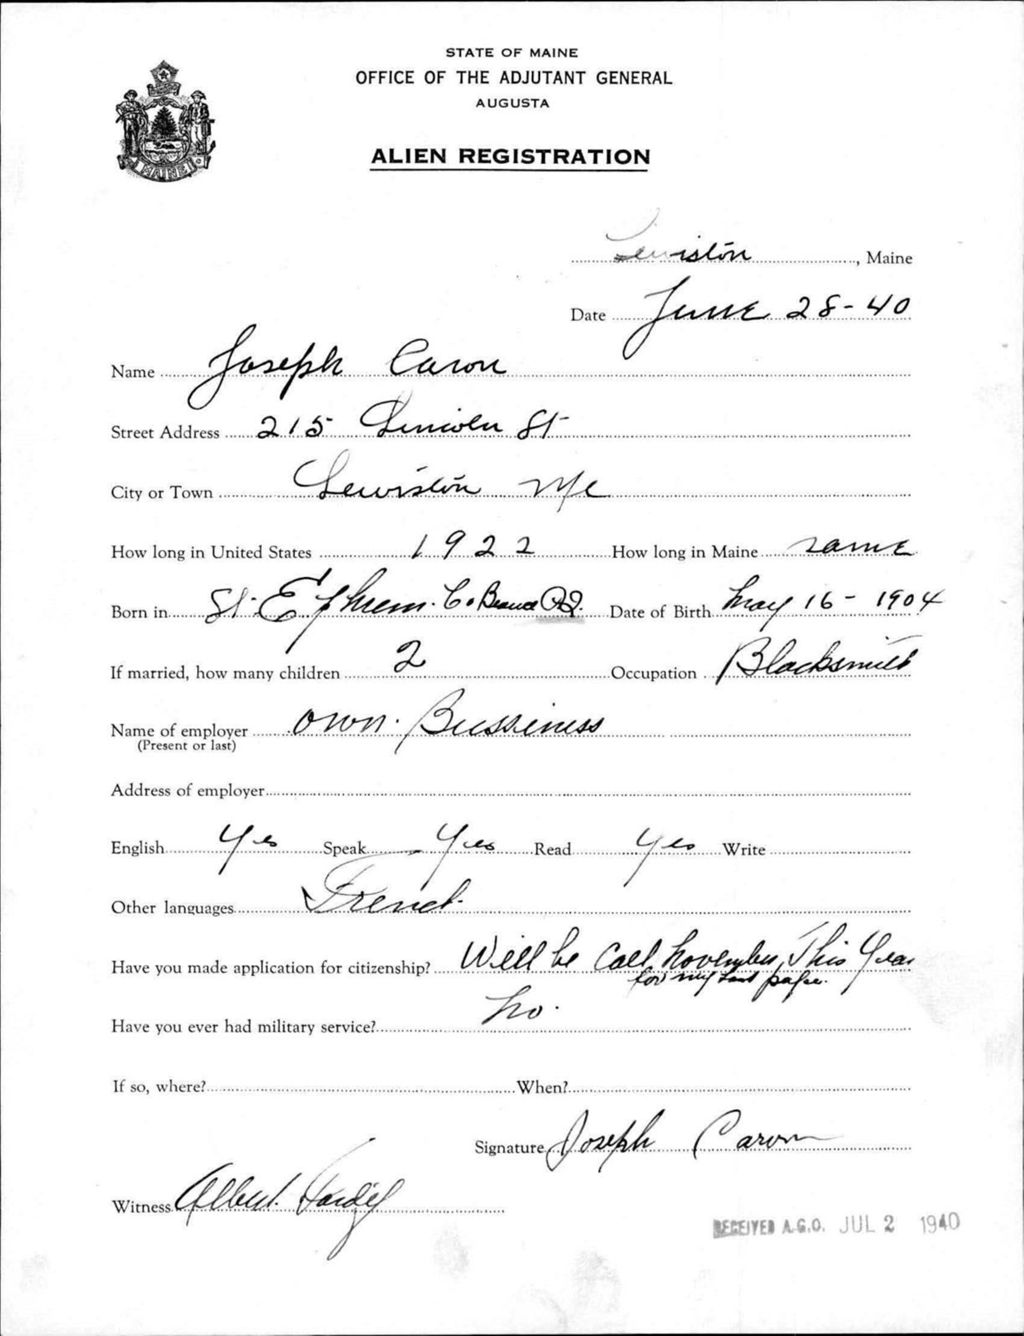 STATE OF MAINE
OFFICE OF THE ADJUTANT GENERAL
AUGUSTA
ALIEN REGISTRATION
MAINE
Lewiston, Maine
Date June 28-40
Name Joseph Caron
Street Address 215 Lincoln St
City or Town Lewiston Me
How long in United States 1922 How long in Maine same
Born in St. Ephrem. Co Beauce P.Q. Date of Birth May 16 - 1904
If married, how many children 2 Occupation Blacksmith
Name of employer own. Bussiness
(Present or last)
Address of employer
English Yes Speak Yes Read Yes Write
Other languages French
Have you made application for citizenship? Will be Call November, This Year
for my last paper.
Have you ever had military service? No.
If so, where? When?
Signature Joseph Caron
Witness Albert
RECEIVED A.G.O. JUL 2 1940